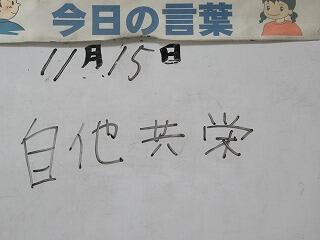 今日の言葉
11月15日
自他共栄